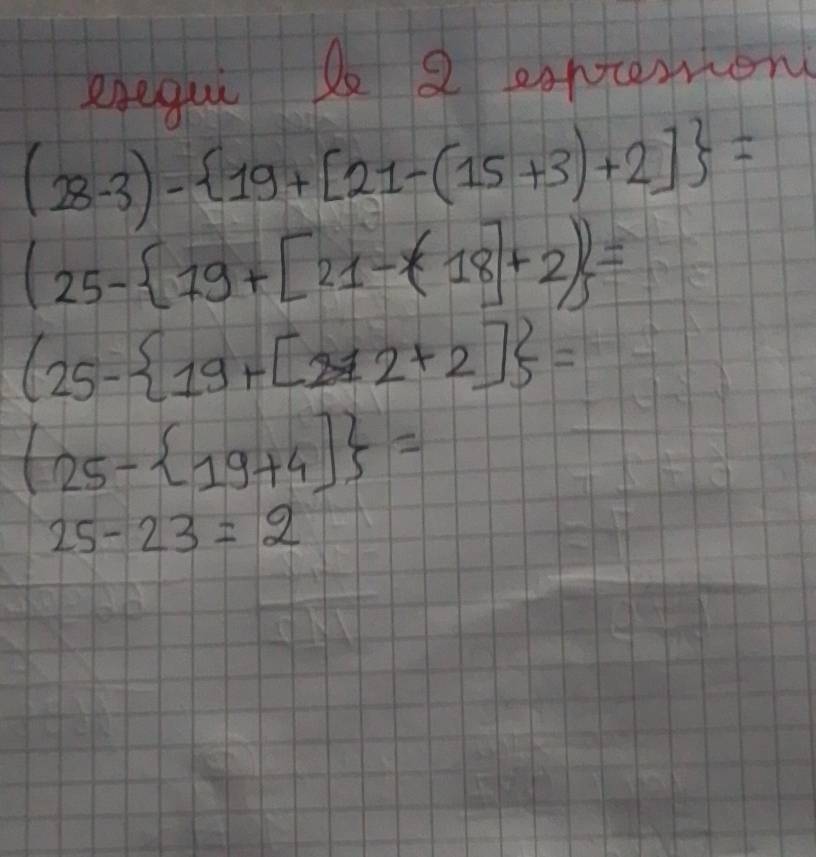 esegui le 2 espressioni
(28-3)-{19+[21-(15+3)+2]}=
(25-{19+[21-(18]+2)}=
(25-{19+[2+2]}=
(25-{19+4]}=
25-23=2